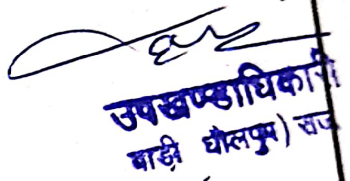 उपखण्डाधिकारी
बाड़ी धौलपुर) राज